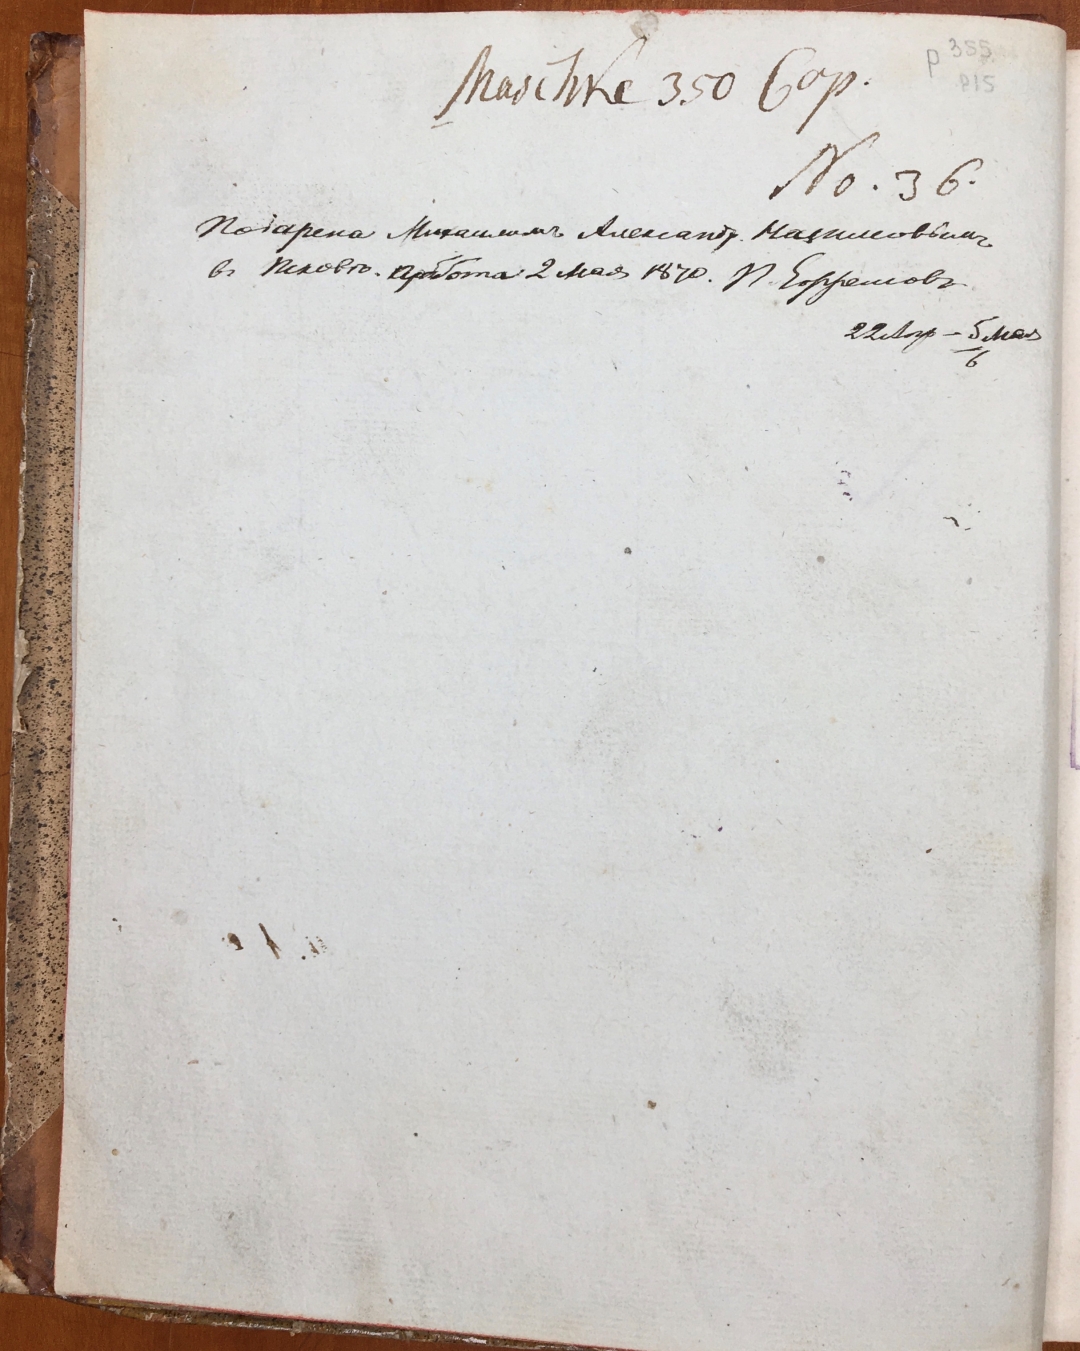 Maschke 350 Cop.
р 355
815
No. 36.
Подарена Михаиломъ Александр. Назимовымъ
въ Псковѣ. Суббота 2 мая 1870. П. Ефремовъ
22 Апр – 5 мая
6